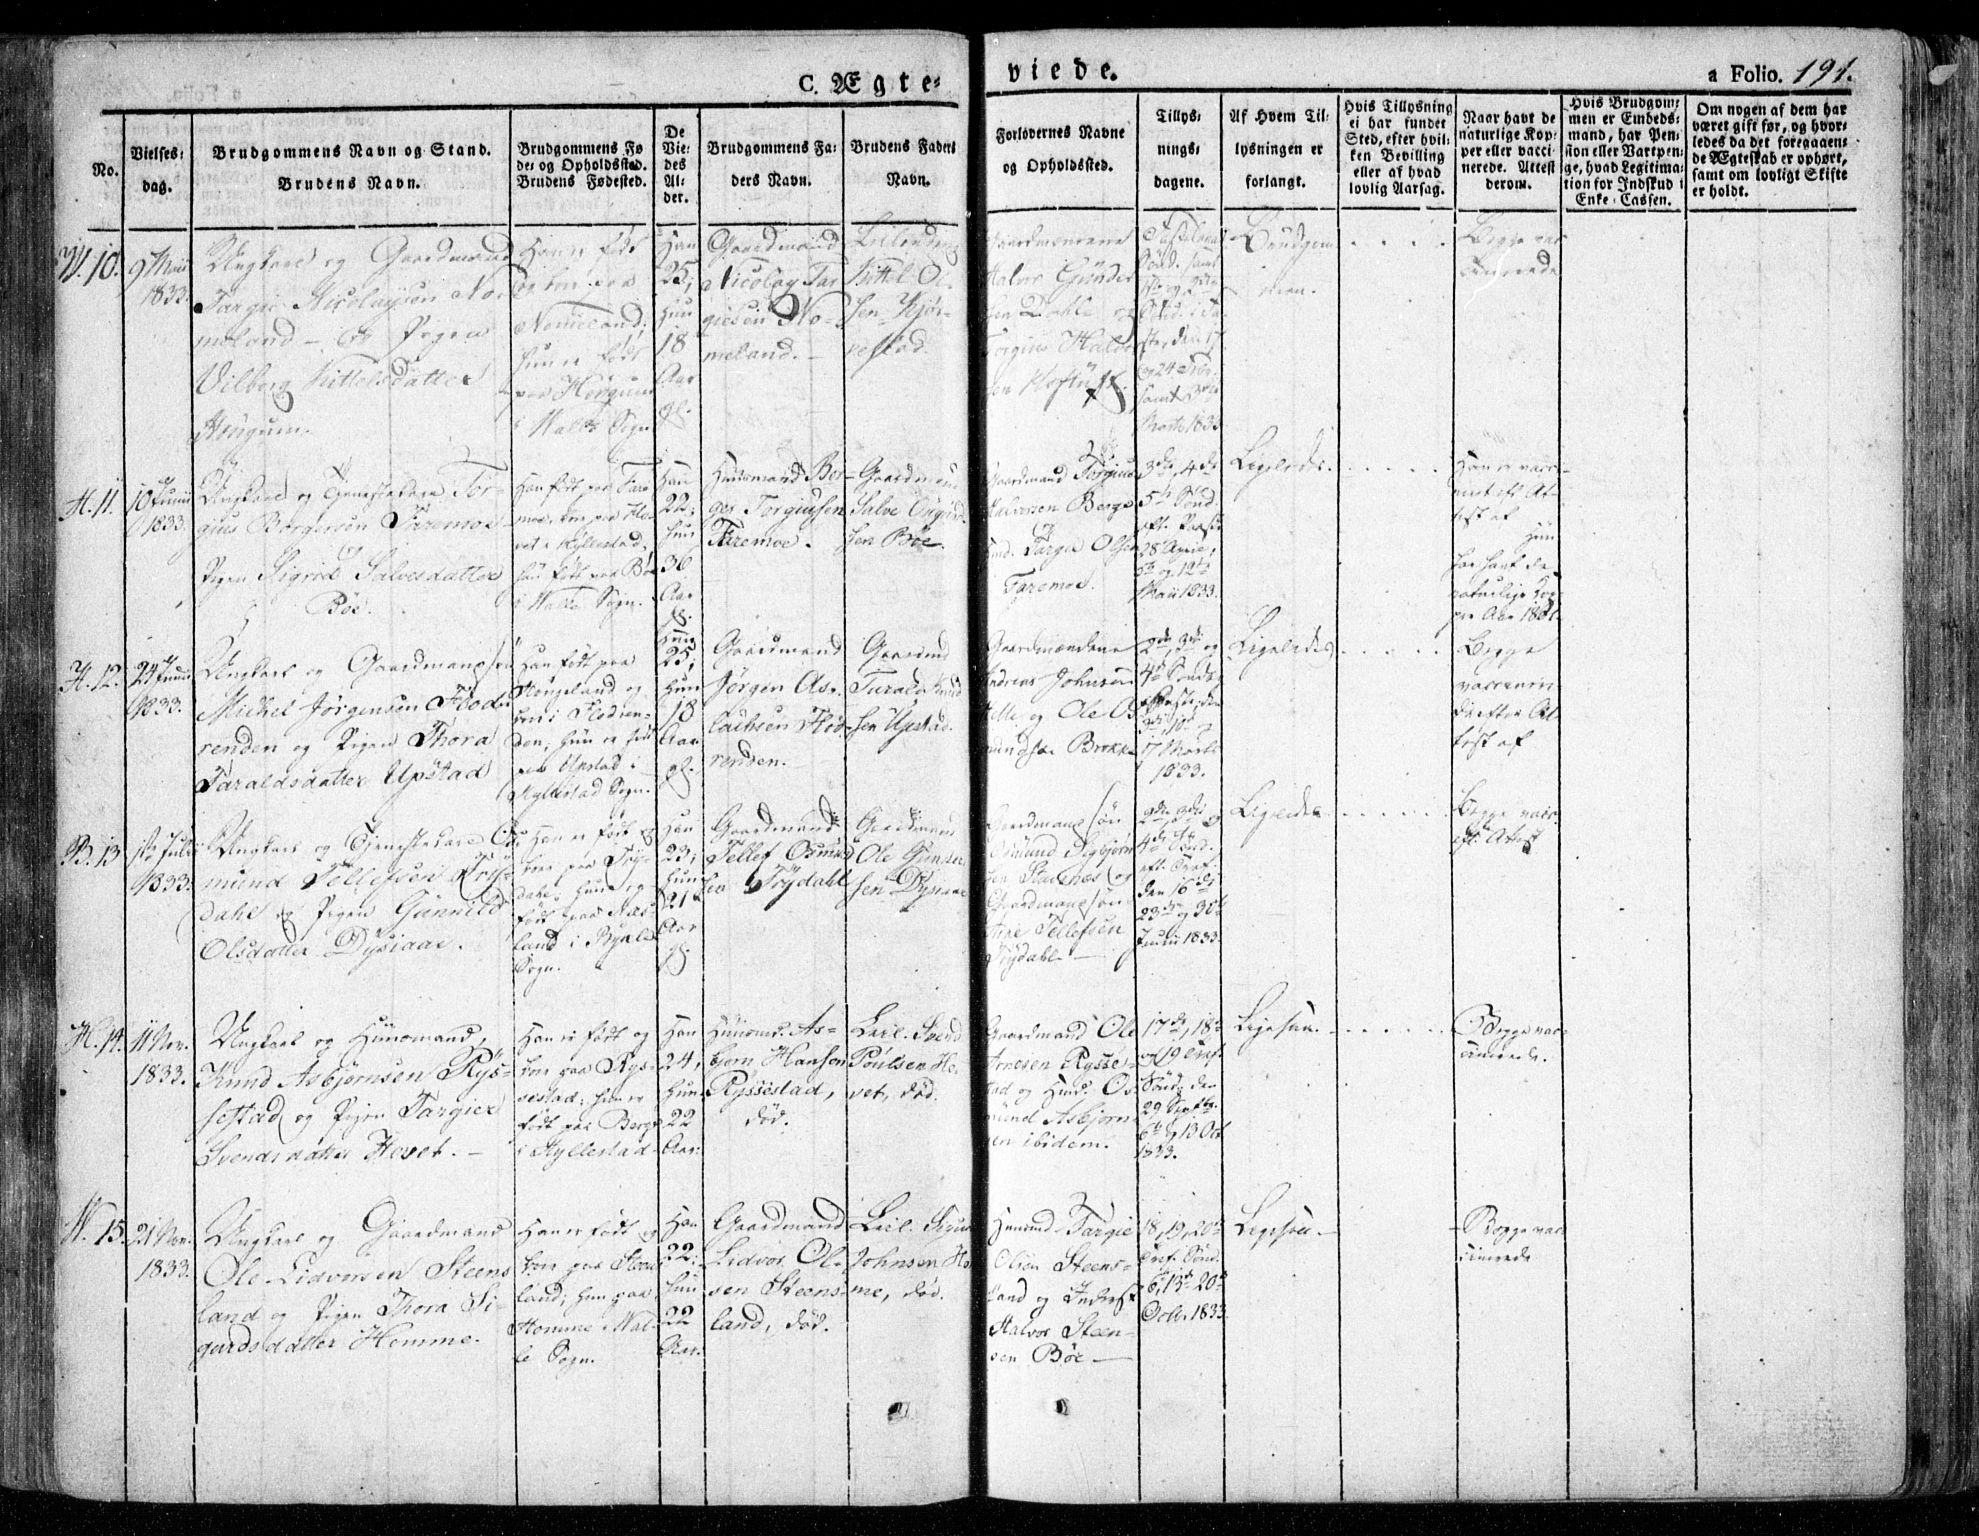 C. Ægte-
viede.
a Folio. 191.
No.
Vielses-
dag.
Brudgommens Navn og Stand.
Brudens Navn.
Brudgommens Fø-
de- og Opholdssted.
Brudens Fødested.
De
Vie-
des
Al-
der.
Brudgommens Fa-
ders Navn.
Brudens Faders
Navn.
Forlovernes Navne
og Opholdssted.
Tillys-
nings-
dagene.
Af Hvem Til-
lysningen er
forlangt.
Hvis Tillysning
ei har fundet
Sted, efter hvil-
ken Bevilling
eller af hvad
lovlig Aarsag.
Naar havt de
naturlige Kop-
per eller vacci-
nerede. Attest
derom.
Hvis Brudgom-
men er Embeds-
mand, har Pen-
sion eller Vartpen-
ge, hvad Legitima-
tion for Indskud i
Enke-Cassen.
Om nogen af dem har
været gift før, og hvor-
ledes da det foregaaen-
de Ægteskab er ophørt,
samt om lovligt Skifte
er holdt.
10.
9 Maii
1833.
Ungkarl og Gaardmand
Targie Nicolaysen No-
meland - og Pigen
Vilborg Kittelsdatter
Han er født
Nomeland;
hun er født
i Walle Sogn
Han
25,
hun
18
Aar
gl.
Gaardmand
Nicolay Tar-
giesen No-
meland. -
Kittel Ol-
sen Kjør-
vestad.
Halvor Gunder-
sen Dahle og
Torgius Halvor-
sen
17
og 24 Febr.
samt 3die
Marts 1833
Brudgom-
men.
. . . .
Begge vac-
cinerede
H. 11.
10 Junii
1833.
Ungkarl og Tjenestekarl Tor-
gius Borgersen Faremoe
Pigen Sigrid Salvesdatter
Bøe.
Han født paa Fare-
moe,
hun født paa Bøe
i Walle Sogn.
Han
22;
hun
36
Aar
gl.
Huusmand Bor-
ger Torgiusen
Faremoe.
Gaardmand
Salve
sen Bøe.
Gaardmand Torgius
Halvorsen Berge
Targie Olsen
Faremoe.
3die, 4de
5te Sønd.
eft. Paaske
28 April,
5te og 12te
Maii 1833.
Ligeledes.
. . . . .
Han er vacci-
neret eft. At-
test af
Hun
har havt de
naturlige Kop-
per Aar 1801.
H. 12.
24 Junii
1833.
Ungkarl og Gaardmandssøn
Michel Jørgensen Flod-
renden og Pigen Thora
Taraldsdatter Upstad
Han født paa
Hougeland og
boer i Flodren-
den; hun er født
paa Upstad i
Hyllestad Sogn.
Han
25;
hun
18
Aar
gl.
Gaardmand
Jørgen As-
lachsen Flod-
renden.
Gaardmd
Tarald Knud-
sen Upstad.
Gaardmændene
Andreas Johnsen
og Ole Os-
mundsen Brokke
2den, 3die og
4de Sønd.
i Faste, den
3die, 10de og
17 Marts
1833.
Ligeledes
. . . . .
Begge
vaccine-
rede efter At-
test af
B. 13
1ste Julii
1833.
Ungkarl og Tjenestekarl Os-
mund Tellefsen Trøy-
dahl og Pigen Gunnild
Olsdatter Dysiaae.
Han er født og
boer paa Trøy-
dahl; hun er
født paa Næs-
land i Bykle
Sogn.
Han
23;
hun
21
Aar
gl.
Gaardmand
Tellef Osmund-
sen Trøydahl
Gaardmand
Ole Gunder-
sen Dysiaae
Gaardmandssøn
Osmund Sigbjørn-
sen Stavenes og
Gaardmandssøn
Arne Tellefsen
Trøydahl. -
2den, 3die og
4de Sønd.
eft. Tref.
den 16de
23de og 30te
Junii 1833.
Ligeledes
. . . . . .
Begge vacc.
eft. Attest
H. 14.
11 Nov.
1833.
Ungkarl og Huusmand,
Knud Asbjørnsen Rys-
sestad og Pigen Targier
Svendsdatter Hovet. -
Han er født og
boer paa Rys-
sestad; hun er
født paa Berge
i Hyllestad
Han
24,
hun
22
Aar.
Huusmd. As-
bjørn Hansen
Ryssestad,
død.
Leil. Svend
Poulsen Ho-
vet, død.
Gaardmand Ole
Arnesen Rysse-
stad og Huusmd. Os-
mund Asbjørn-
sen ibidem.
17de, 18de
og 19 Tref.
Sønd. den
29 Septbr.
6te og 13 Oct
1833.
Ligesaa.
- . . . . . .
Begge vac-
cinerede.
15.
21 Nov.
1833.
Ungkarl og Gaardmand
Ole Lidvorsen Steens-
land og Pigen Thora Si-
gurdsdatter Homme.
Han er født og
boer paa Steens-
land; hun paa
Homme i Wal-
le Sogn.
Han
22;
hun
22
Aar.
Gaardmand
Lidvor Ol-
sen Steens-
land, død.
Leil. Sigurd
Johnsen Hom-
me, død.
Huusmd Targie
Olsen Steens-
land og
Halvor Steen-
sen Bøe -
18, 19, 20de
Tref. Sønd.
6te, 13de 20de
Octbr 1833
Ligesaa -
- Begge vac-
cinerede